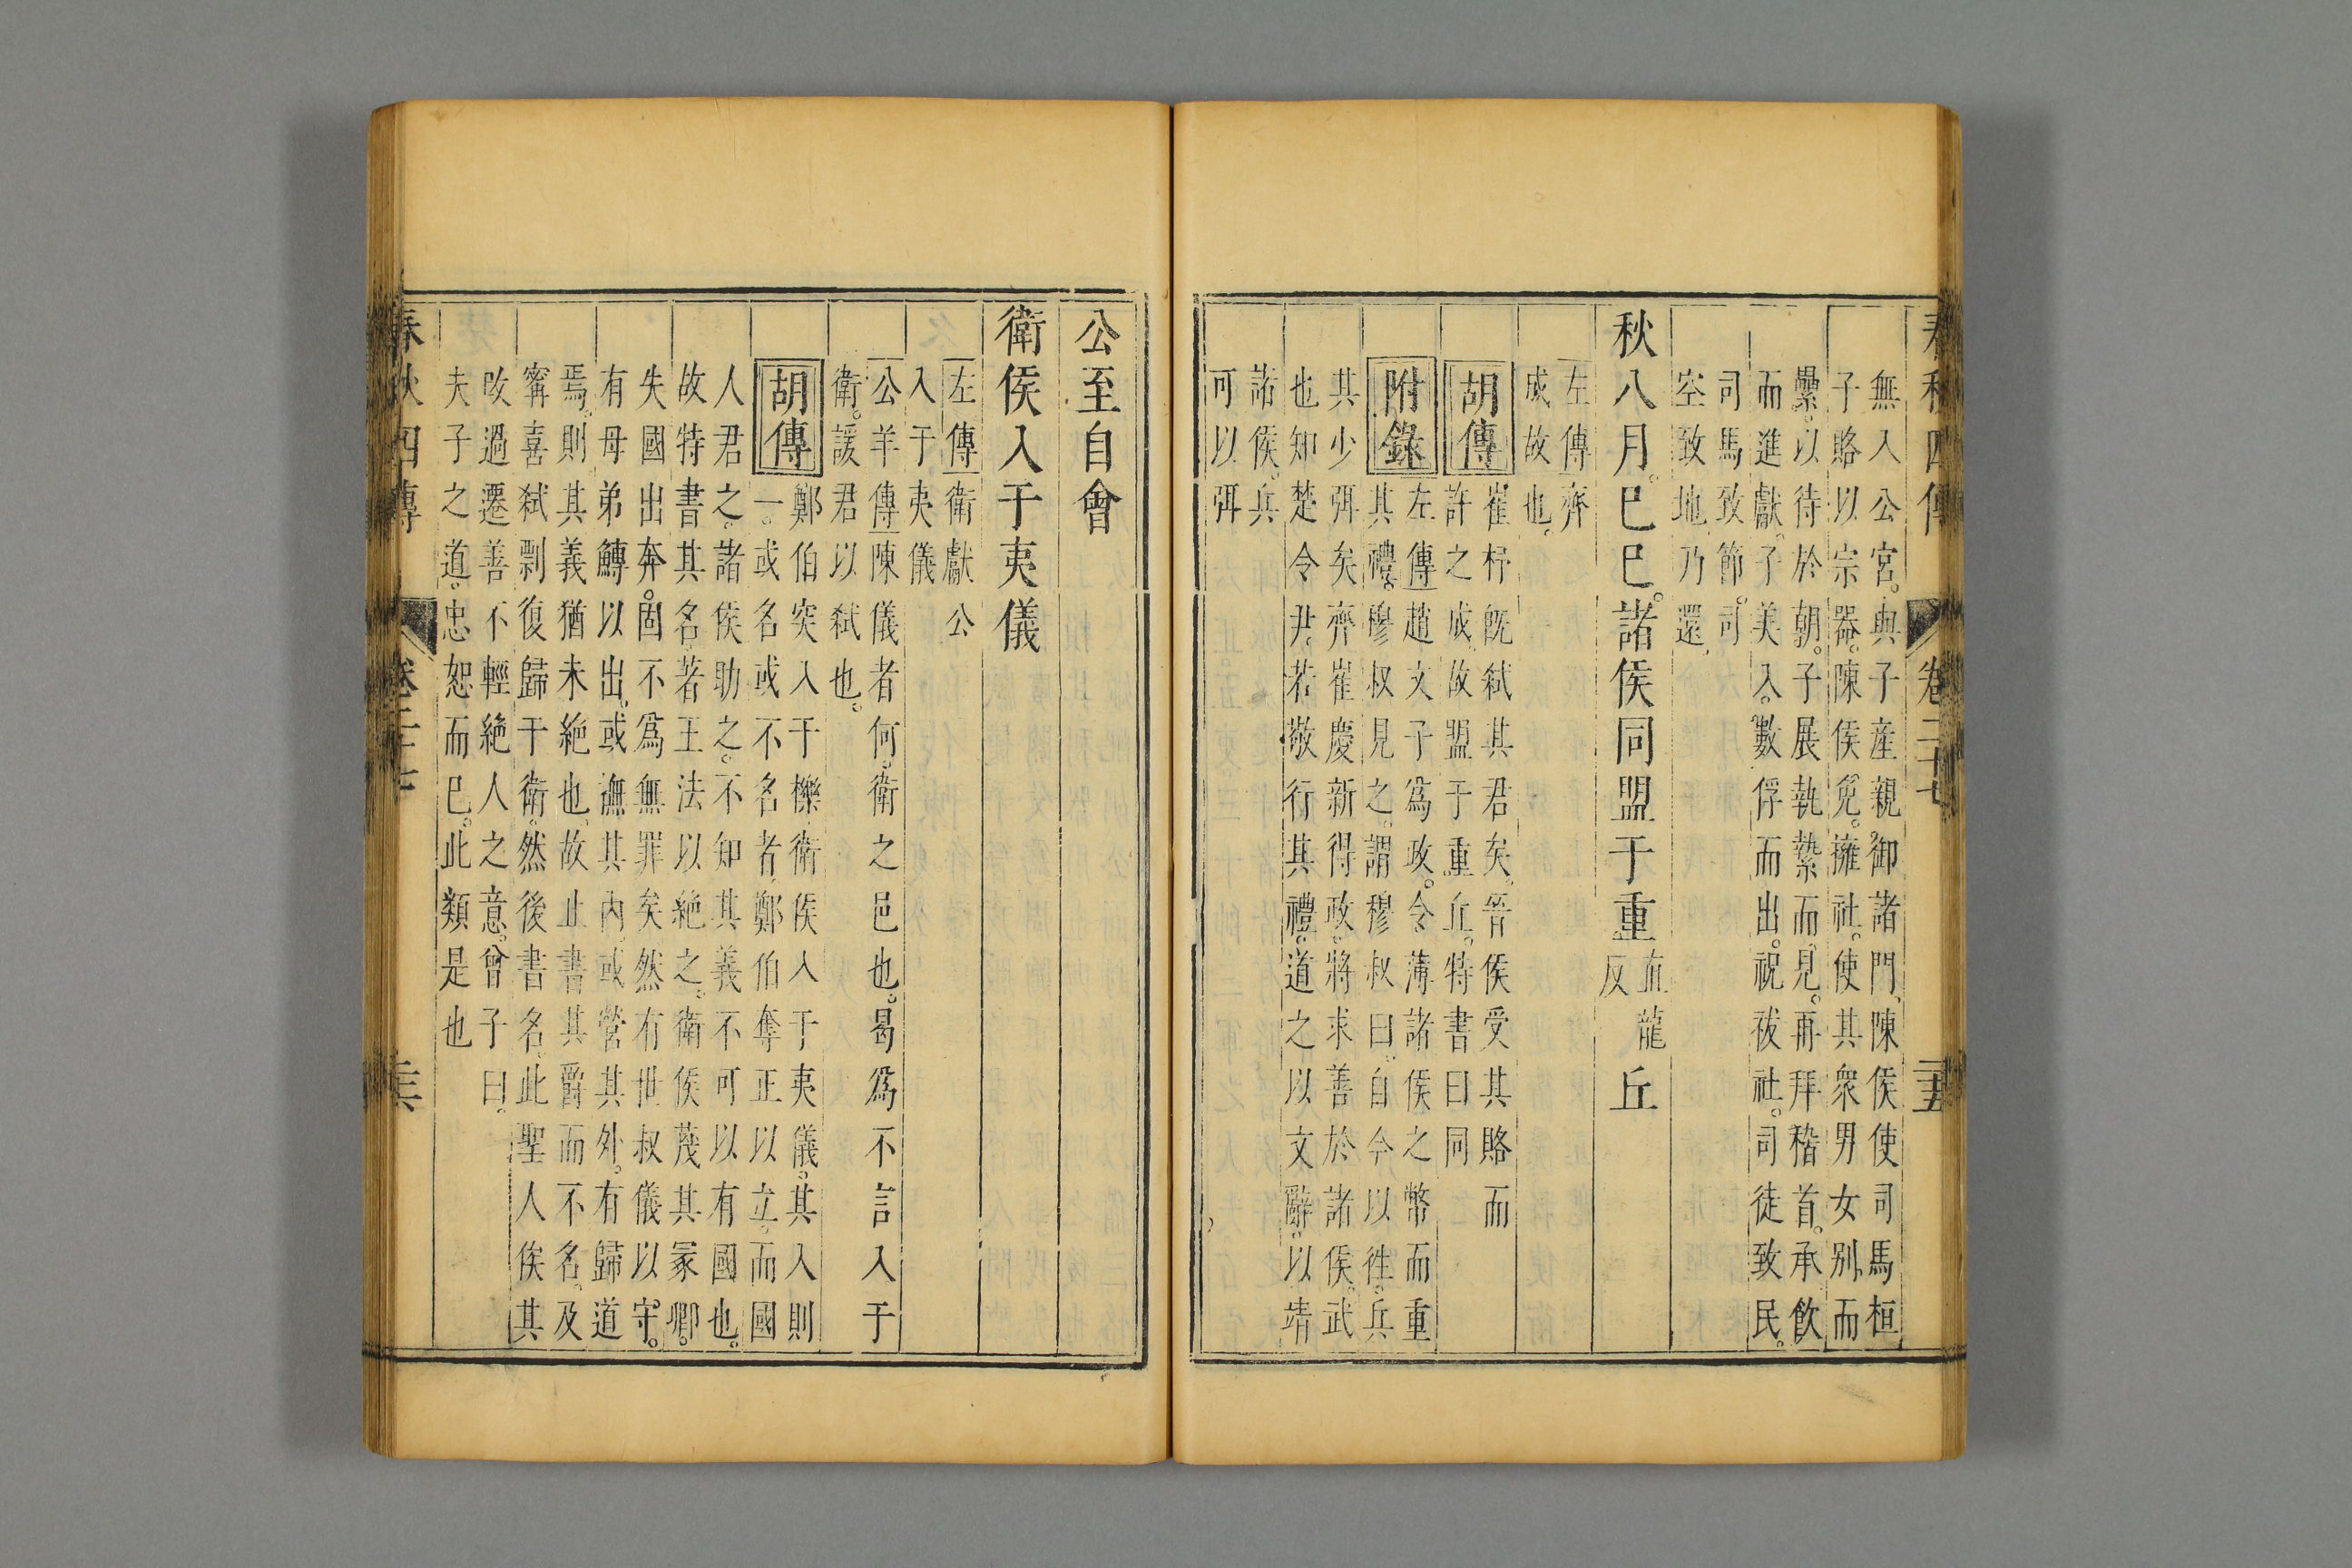 春秋四傳 卷二十七 二十五
無入公宮。與子產親御諸門、陳侯使司馬桓
子賂以宗器。陳侯免。擁社。使其衆男女別、而
纍。以待於朝。子展執縶而見。再拜稽首。承飲
而進獻。子美入。數俘而出。祝祓社。司徒致民。
司馬致節。司
空致地、乃還、
秋八月。巳巳。諸侯同盟于重直龍反丘
左傳齊
成故也。
胡傳 崔杼旣弑其君矣。晉侯受其賂而
許之成、故盟于重丘。特書曰同
附錄 左傳趙文子爲政。令薄諸侯之幣而重
其禮。穆叔見之。謂穆叔曰。自今以往。兵
其少弭矣齊崔慶新得政。將求善於諸侯。武
也知楚令尹。若敬行其禮。道之以文辭。以靖
諸侯。兵
可以弭
公至自會
衛侯入于夷儀
左傳衛獻公
入于夷儀
公羊傳陳儀者何。衛之邑也。曷爲不言入于
衛。諼君以弑也。
胡傳 鄭伯突入于櫟衛侯入于夷儀。其入則
一。或名或不名者、鄭伯奪正以立。而國
人君之。諸侯助之。不知其義不可以有國也。
故特書其名。著王法以絶之。衛侯蔑其冢卿。
失國出奔。固不爲無罪矣然有世叔儀以守。
有母弟鱄以出。或撫其內。或營其外。有歸道
焉。則其義猶未絶也、故止書其爵而不名。及
甯喜弑剽復歸于衛。然後書名、此聖人俟其
改過遷善不輕絶人之意。曾子曰。
夫子之道。忠恕而巳。此類是也
春秋四傳 卷二十七 二十六